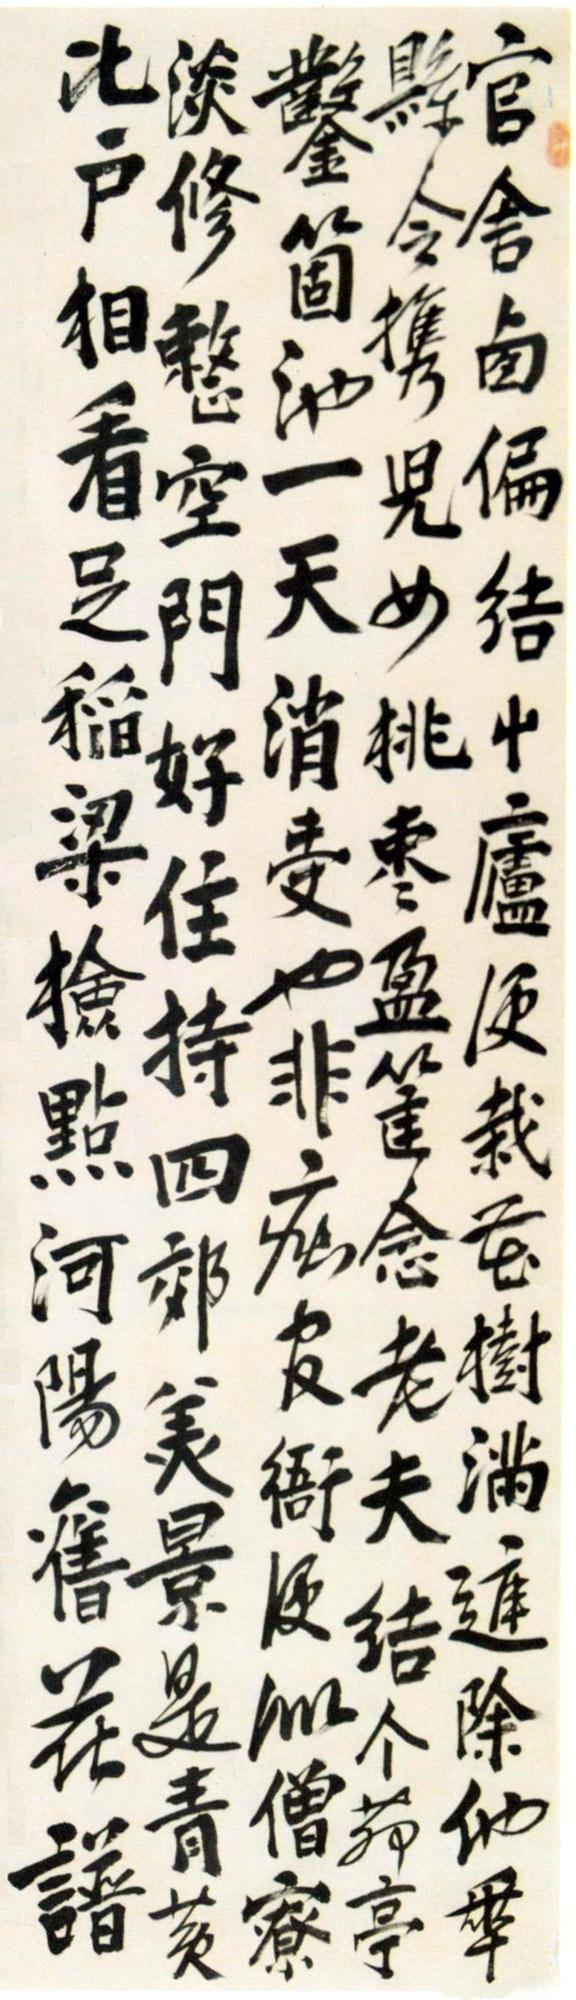 官舍卤偏結屮廬便栽花樹滿庭除他年
縣令携兒女桃棗盈筐念老夫結个茆亭
鑿箇池一天消受也非疵官衙便似僧寮
淡修整空門好住持四郊美景是青黄
比户相看足稻粱檢點河陽舊花譜